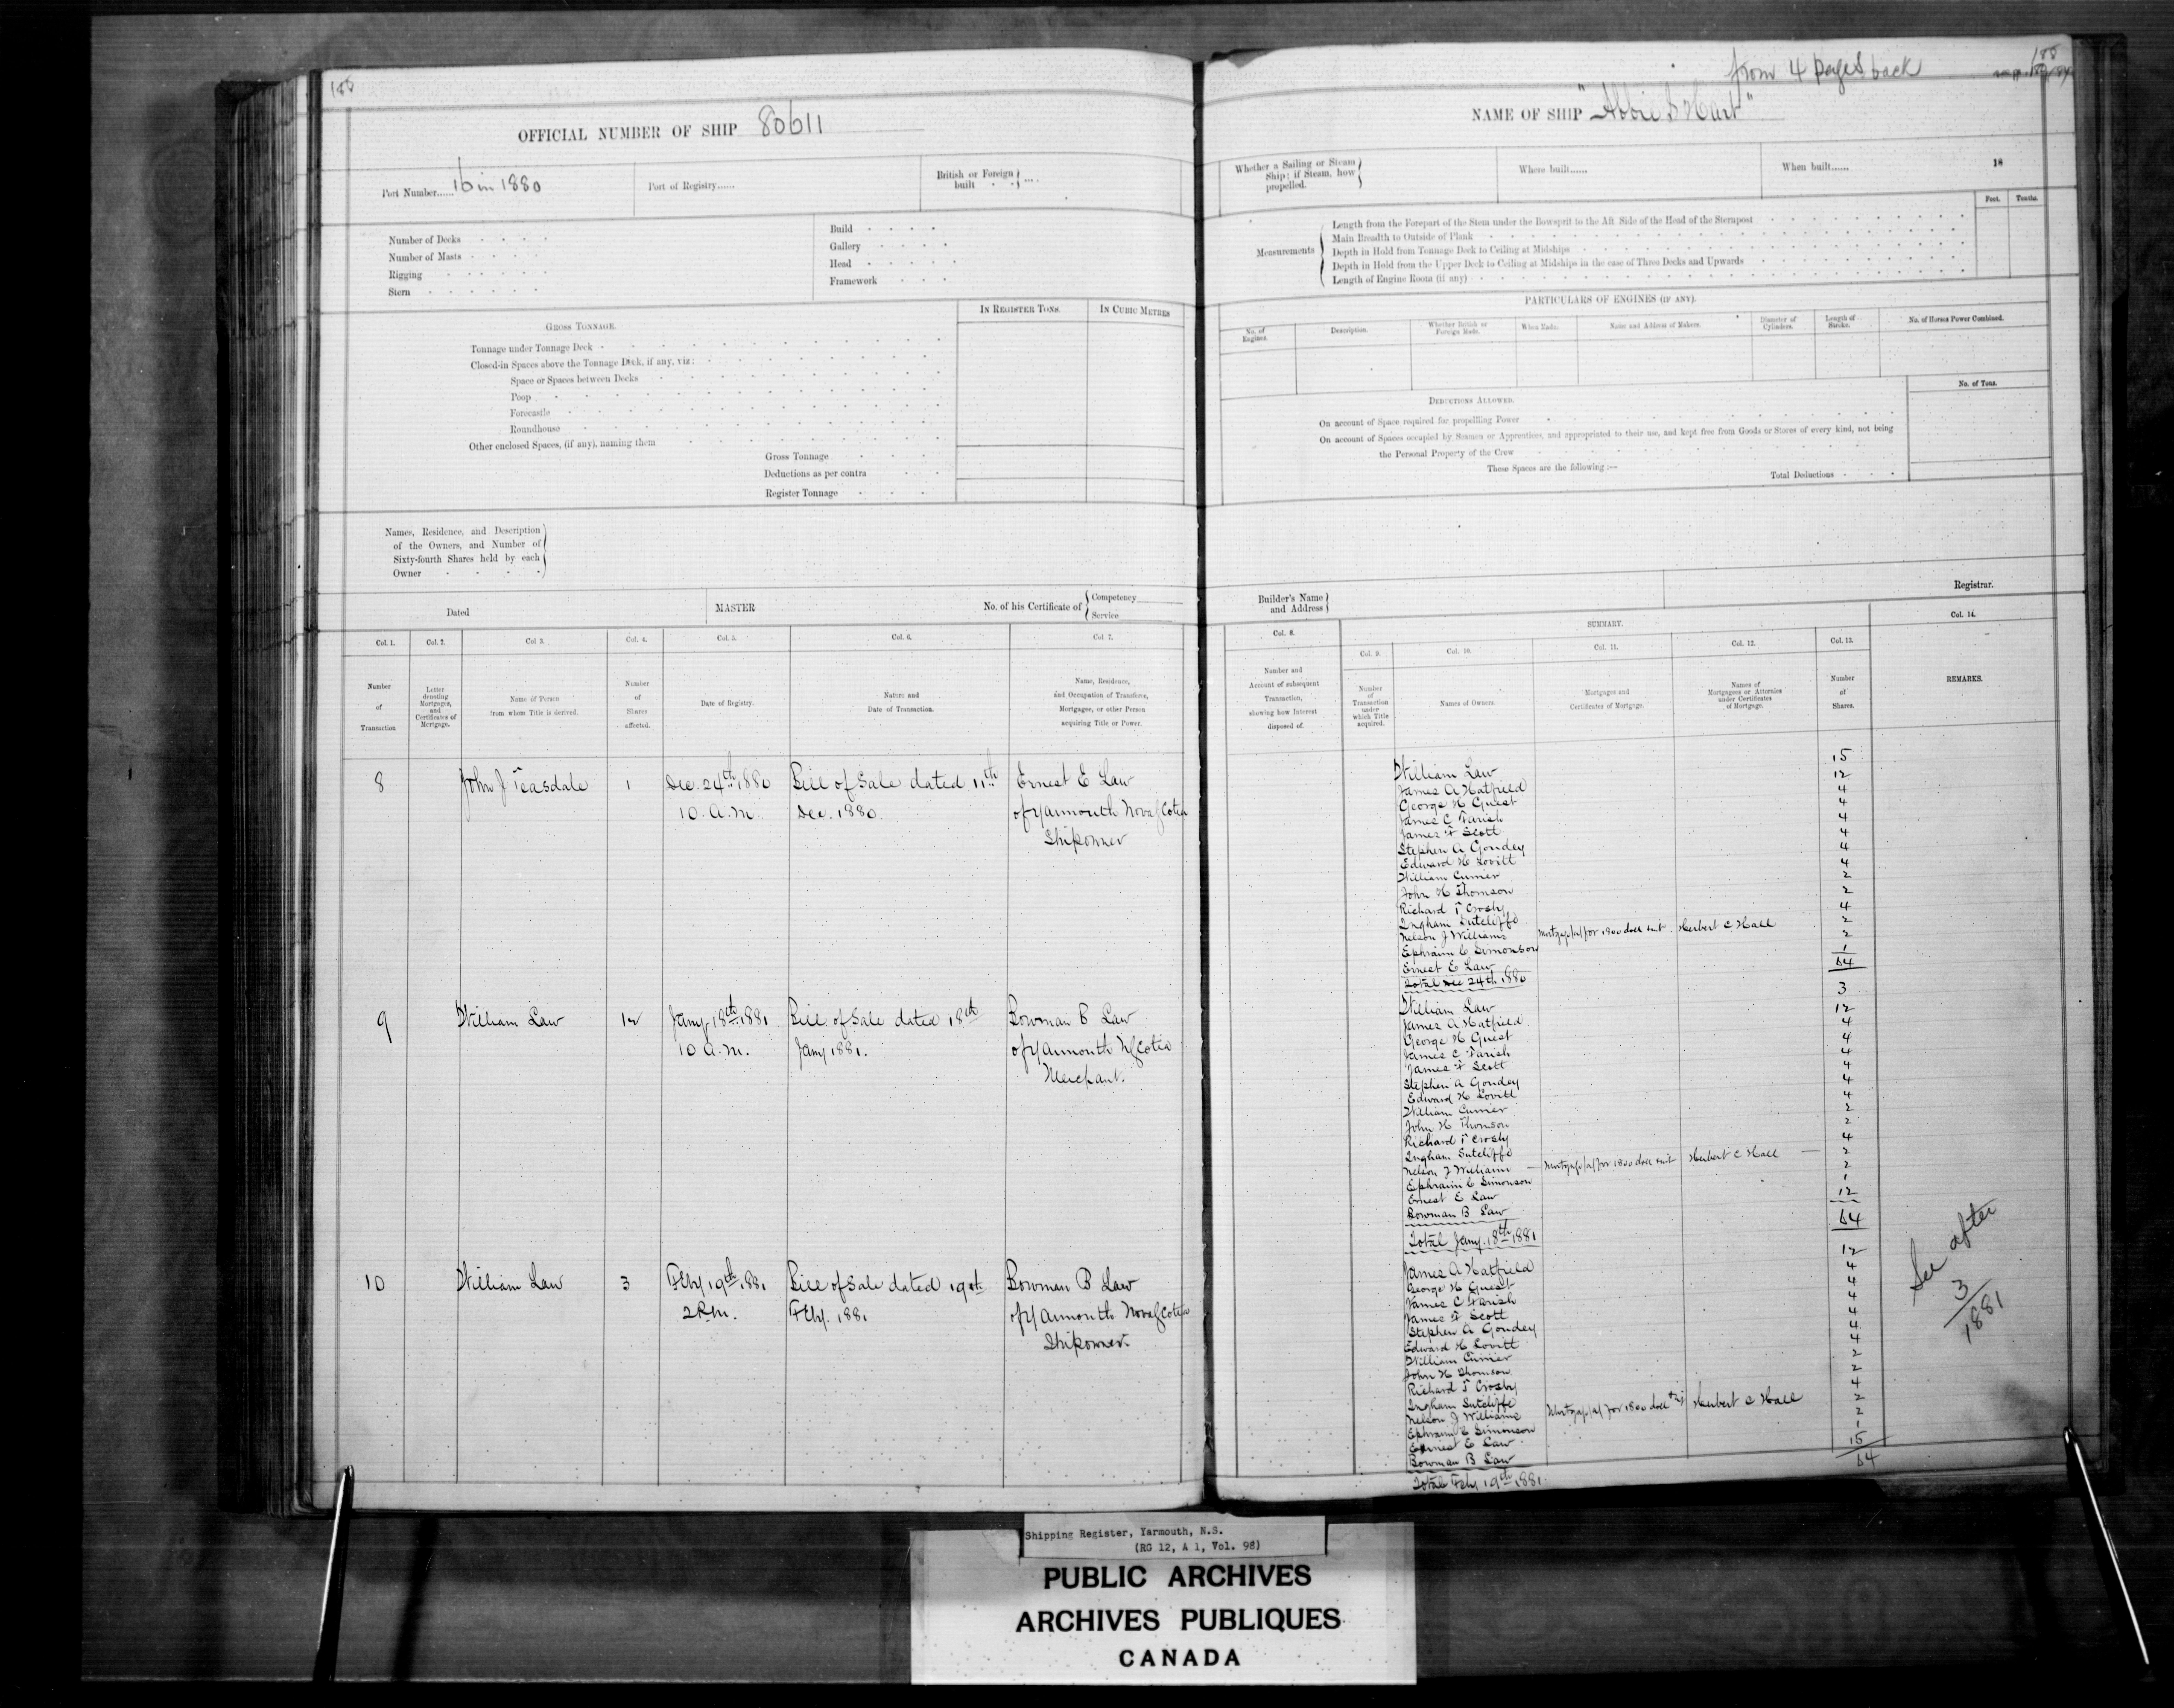 188
OFFICIAL NUMBER OF SHIP 80611
Port Number...... 16 in 1880
Port of Registry......
British or Foreign built
Number of Decks
Number of Masts
Rigging
Stern
Build
Gallery
Head
Framework
IN REGISTER TONS.
IN CUBIC METRES
GROSS TONNAGE.
Tonnage under Tonnage Deck
Closed-in Spaces above the Tonnage Deck, if any, viz:
Space or Spaces between Decks
Poop
Forecastle
Roundhouse
Other enclosed Spaces, (if any), naming them
Gross Tonnage
Deductions as per contra
Register Tonnage
Names, Residence, and Description
of the Owners, and Number of
Sixty-fourth Shares held by each
Owner
Dated
MASTER
No. of his Certificate of
Competency
Service
Col. 1.
Col. 2.
Col 3.
Col. 4.
Col. 5.
Col. 6.
Col 7.
Number of Transaction
Letter denoting Mortgages, and Certificates of Mortgage.
Name of Person from whom Title is derived.
Number of Shares affected.
Date of Registry.
Nature and Date of Transaction.
Name, Residence, and Occupation of Transferee, Mortgagee, or other Person acquiring Title or Power.
8 John J Teasdale 1 Dec. 24th 1880 Bill of Sale dated 11th Ernest E Law
10. a.m. Dec. 1880. of Yarmouth Nova Scotia
Shipowner
9 William Law 12 Jany 18th 1881 Bill of Sale dated 18th Bowman B Law
10 a.m. Jany 1881. of Yarmouth N Scotia
Merchant.
10 William Law 3 Feby 19th 1881 Bill of Sale dated 19th Bowman B Law
2 P.m. Feby. 1881 of Yarmouth Nova Scotia
Shipowner.
from 4 pages back
188
NAME OF SHIP "Abbie S Hart"
Whether a Sailing or Steam
Ship; if Steam, how
propelled.
Where built......
When built......
18
Feet.
Tenths.
Measurements
Length from the Forepart of the Stem under the Bowsprit to the Aft Side of the Head of the Sternpost
Main Breadth to Outside of Plank
Depth in Hold from Tonnage Deck to Ceiling at Midships
Depth in Hold from the Upper Deck to Ceiling at Midships in the case of Three Decks and Upwards
Length of Engine Room (if any)
PARTICULARS OF ENGINES (IF ANY).
No. of Engines.
Description.
Whether British or Foreign Made.
When Made.
Name and Address of Makers.
Diameter of Cylinders.
Length of Stroke.
No. of Horses Power Combined.
No. of Tons.
DEDUCTIONS ALLOWED.
On account of Space required for propelling Power
On account of Spaces occupied by Seamen or Apprentices, and appropriated to their use, and kept free from Goods or Stores of every kind, not being
the Personal Property of the Crew
These Spaces are the following :—
Total Deductions
Builder's Name
and Address
Registrar.
SUMMARY.
Col. 8.
Col. 9.
Col. 10.
Col. 11.
Col. 12.
Col. 13.
Col. 14.
Number and Account of subsequent Transaction, showing how Interest disposed of.
Number of Transaction under which Title acquired.
Names of Owners.
Mortgages and Certificates of Mortgage.
Names of Mortgagees or Attornies under Certificates of Mortgage.
Number of Shares.
REMARKS.
William Law 15
James A Hatfield 12
George H Guest 4
James C Farish 4
James F Scott 4
Stephen A Goudey 4
Edward H Lovitt 4
William Currier 4
John H Thomson 2
Richard T Crosby 2
Ingham Sutcliffe 4
Nelson J Williams Mortgage (a) for 1800 doll int Herbert C Hall 2
Ephraim C Simonson 2
Ernest E Law 1
Total Dec 24th 1880 64
William Law 3
James A Hatfield 12
George H Guest 4
James C Farish 4
James F Scott 4
Stephen A Goudey 4
Edward H Lovitt 4
William Currier 4
John H Thomson 2
Richard T Crosby 2
Ingham Sutcliffe 4
Nelson J Williams — Mortgage (a) for 1800 doll int Herbert C Hall — 2
Ephraim C Simonson 2
Ernest E Law 1
Bowman B Law 12
Total Jany. 18th 1881 64
James A Hatfield 12
George H Guest 4
James C Farish 4
James F Scott 4
Stephen A Goudey 4
Edward H Lovitt 4
William Currier 4
John H Thomson 2
Richard T Crosby 2
Ingham Sutcliffe 4
Nelson J Williams Mortgage (a) for 1800 doll Herbert C Hall 2
Ephraim C Simonson 2
Ernest E Law 1
Bowman B Law 15
Total Feby 19th 1881. 64
See after
3
1881
Shipping Register, Yarmouth, N.S.
(RG 12, A 1, Vol. 98)
PUBLIC ARCHIVES
ARCHIVES PUBLIQUES
CANADA